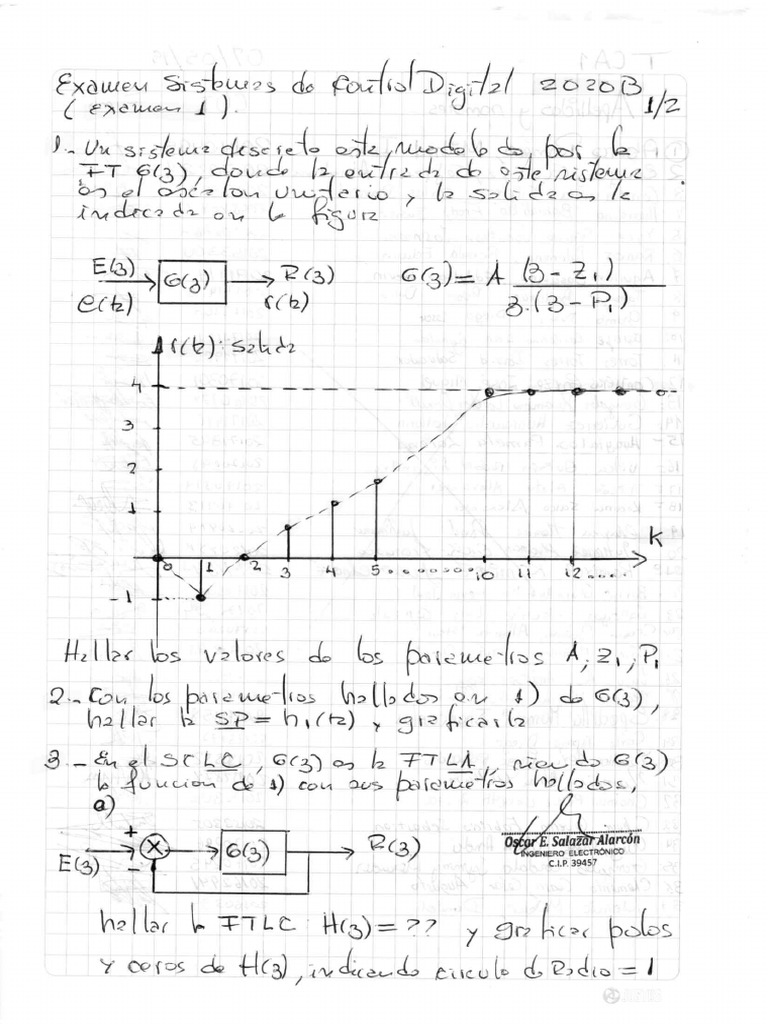 Examen Sistemas de Control Digital 2020B
(examen 1).
1/2
1.- Un sistema discreto esta modelado por la
FT G(z), donde la entrada de este sistema
es el escalon unitario y la salida es la
indicada en la figura
E(z) G(z) R(z) G(z) = A (z - Z1)
e(k) r(k) z.(z - P1)
r(k): salida
4
3
2
1
0 1 2 3 4 5 ........ 10 11 12 ....
k
-1
Hallar los valores de los parametros A, Z1, P1
2.- Con los parametros hallados en 1) de G(z),
hallar la SP = h1(k) y graficarla
3.- En el SCLC, G(z) es la FTLA, siendo G(z)
la funcion de 1) con sus parametros hallados,
a)
+
E(z) X G(z) R(z)
-
Oscar E. Salazar Alarcón
INGENIERO ELECTRÓNICO
C.I.P. 39457
hallar la FTLC H(z) = ?? y graficar polos
y ceros de H(z), indicando circulo de Radio = 1